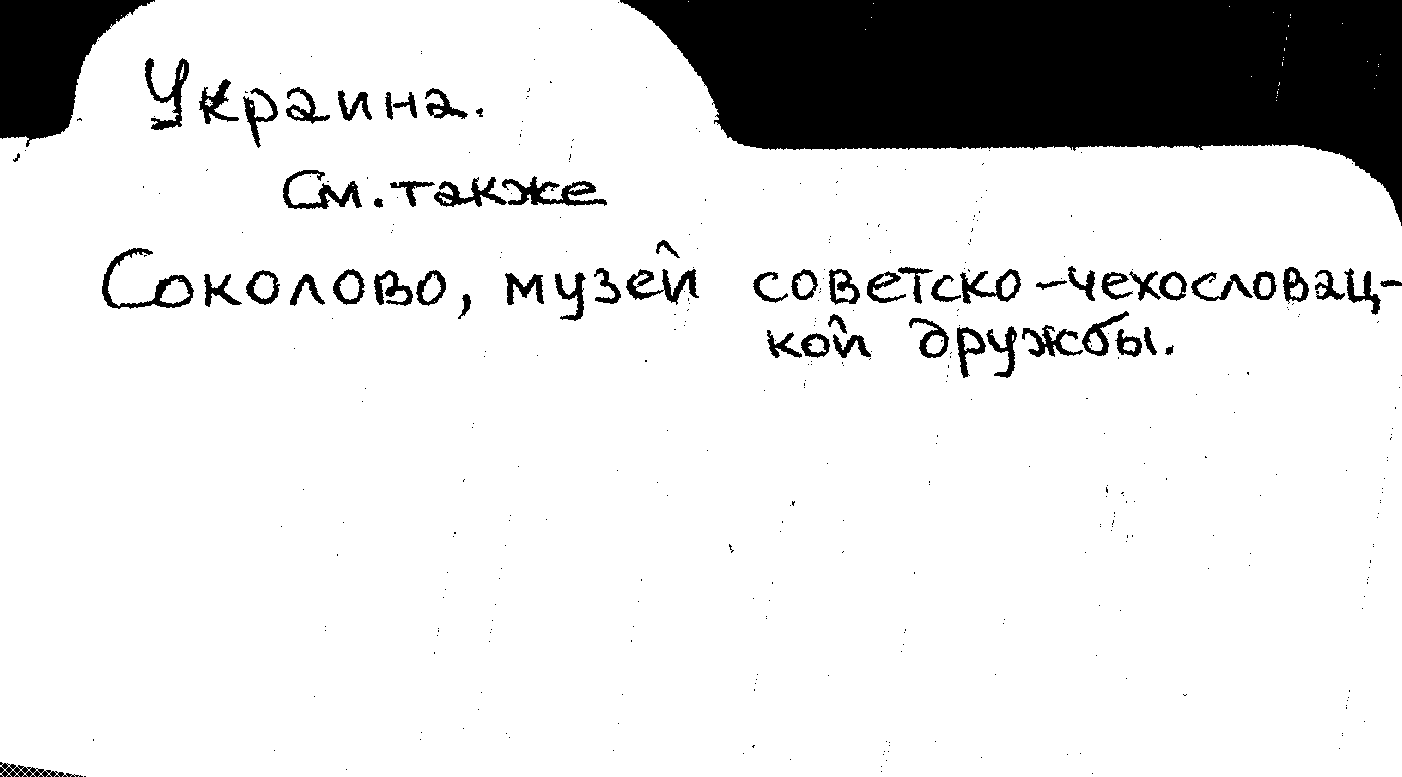 Украина.
См. также
Соколово, музей советско-чехословац-
кой дружбы.